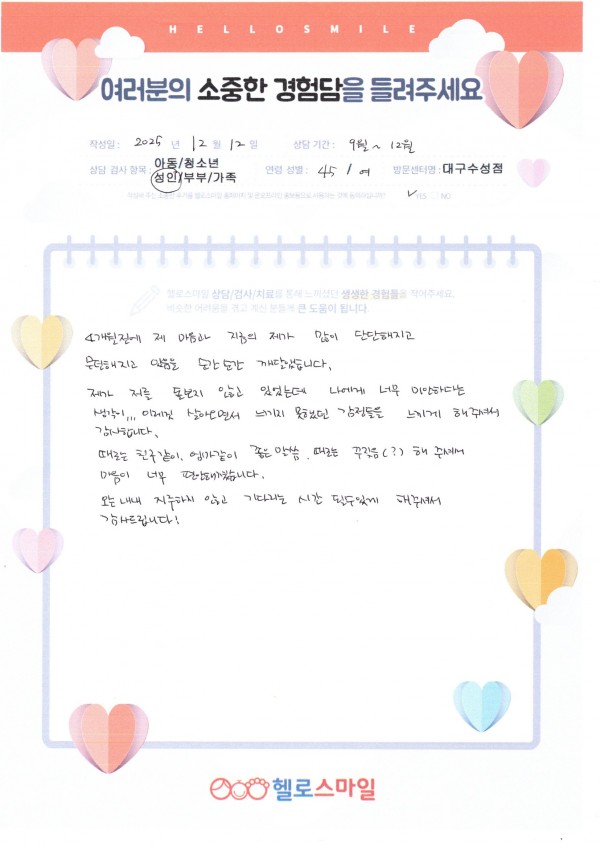 HELLOSMILE
여러분의 소중한 경험담을 들려주세요
작성일 : 2025 년 12 월 12 일 상담 기간 : 9월 ~ 12월
상담 검사 항목 : 아동/청소년 성인/부부/가족 연령 성별 : 45 / 여 방문센터명 : 대구수성점
✓ YES NO
헬로스마일 상담/검사/치료를 통해 느끼셨던 생생한 경험들을 적어주세요.
비슷한 어려움을 겪고 계신 분들께 큰 도움이 됩니다.
4개월전에 제 마음과 지금의 제가 많이 단단해지고
무던해지고 있음을 순간순간 깨달았습니다.
제가 저를 돌보지 않고 있었는데 나에게 너무 미안하다는
생각이,,, 이제껏 살아오면서 느끼지 못했던 감정들을 느끼게 해주셔서
감사합니다.
때로는 친구같이, 엄마같이 좋은말씀, 때로는 꾸짖음(?) 해 주셔서
마음이 너무 편안해졌습니다.
오는내내 지루하지 않고 기다리는 시간 될수있게 해주셔서
감사드립니다!
헬로스마일